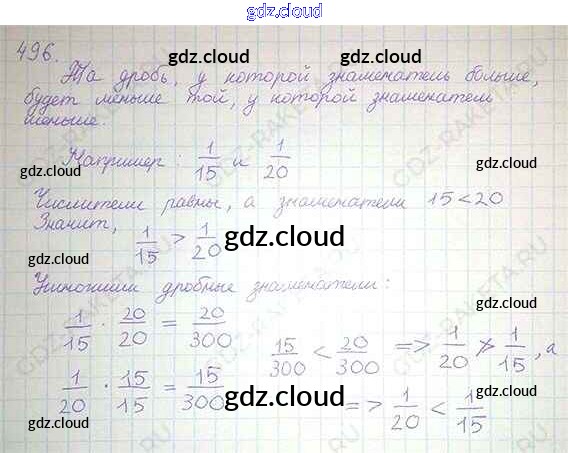 gdz.cloud
496.
gdz.cloud gdz.cloud
Та дробь, у которой знаменатель больше,
будет меньше той, у которой знаменатель
меньше.
gdz.cloud gdz.cloud
Например: 1/15 и 1/20
gdz.cloud gdz.cloud
Числители равны, а знаменатели 15 < 20
Значит, 1/15 > 1/20
gdz.cloud
Умножим дробные знаменатели:
1/15 · 20/20 = 20/300
15/300 < 20/300 => 1/20 > 1/15, а
1/20 · 15/15 = 15/300
=> 1/20 < 1/15
gdz.cloud gdz.cloud
gdz.cloud gdz.cloud
GDZ-RAKETA.RU